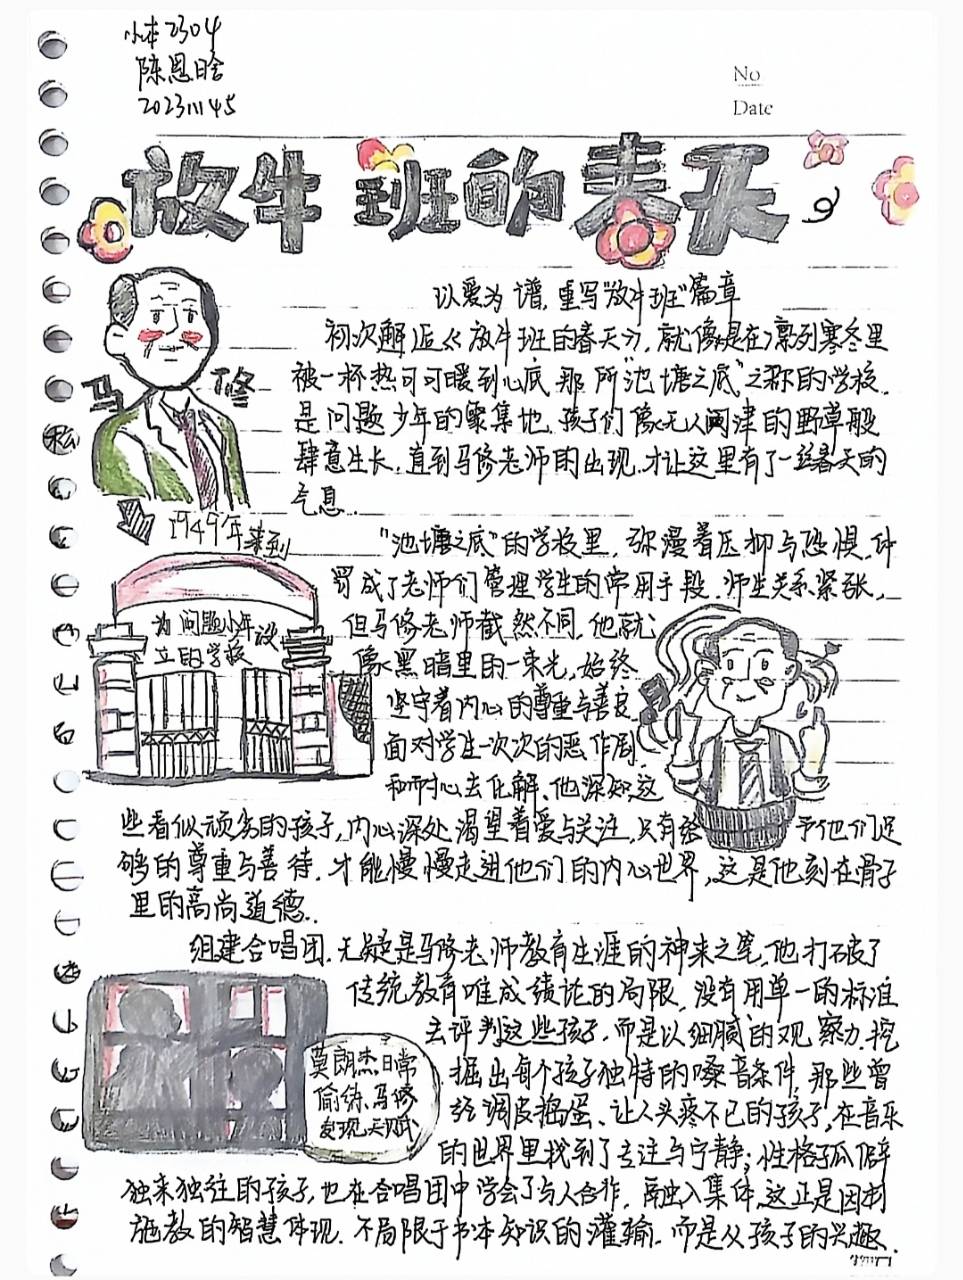 小本2304
陈恩晗
202311145
No
Date
放牛班的春天
以爱为谱,重写“放牛班”篇章
初次邂逅《放牛班的春天》,就像是在凛冽寒冬里
被一杯热可可暖到心底.那所“池塘之底”之称的学校.
是问题少年的聚集地.孩子们像无人问津的野草般
肆意生长.直到马修老师的出现.才让这里有了一丝春天的
气息.
马修
1949年来到
“池塘之底”的学校里,弥漫着压抑与恐惧.体
罚成了老师们管理学生的常用手段.师生关系紧张,
但马修老师截然不同,他就
像黑暗里的一束光,始终
坚守着内心的尊重与善良
面对学生一次次的恶作剧.
和耐心去化解.他深知这
些看似顽劣的孩子,内心深处渴望着爱与关注.只有给予他们足
够的尊重与善待.才能慢慢走进他们的内心世界,这是他刻在骨子
里的高尚道德.
为问题少年设
立的学校
组建合唱团.无疑是马修老师教育生涯的神来之笔,他打破了
传统教育唯成绩论的局限.没有用单一的标准
去评判这些孩子.而是以细腻的观察力.挖
掘出每个孩子独特的嗓音条件,那些曾
经调皮捣蛋、让人头疼不已的孩子,在音乐
的世界里找到了专注与宁静;性格孤僻
独来独往的孩子,也在合唱团中学会了与人合作.融入集体.这正是因材
施教的智慧体现.不局限于书本知识的灌输.而是从孩子的兴趣.
莫朗杰日常
偷练.马修
发现天赋